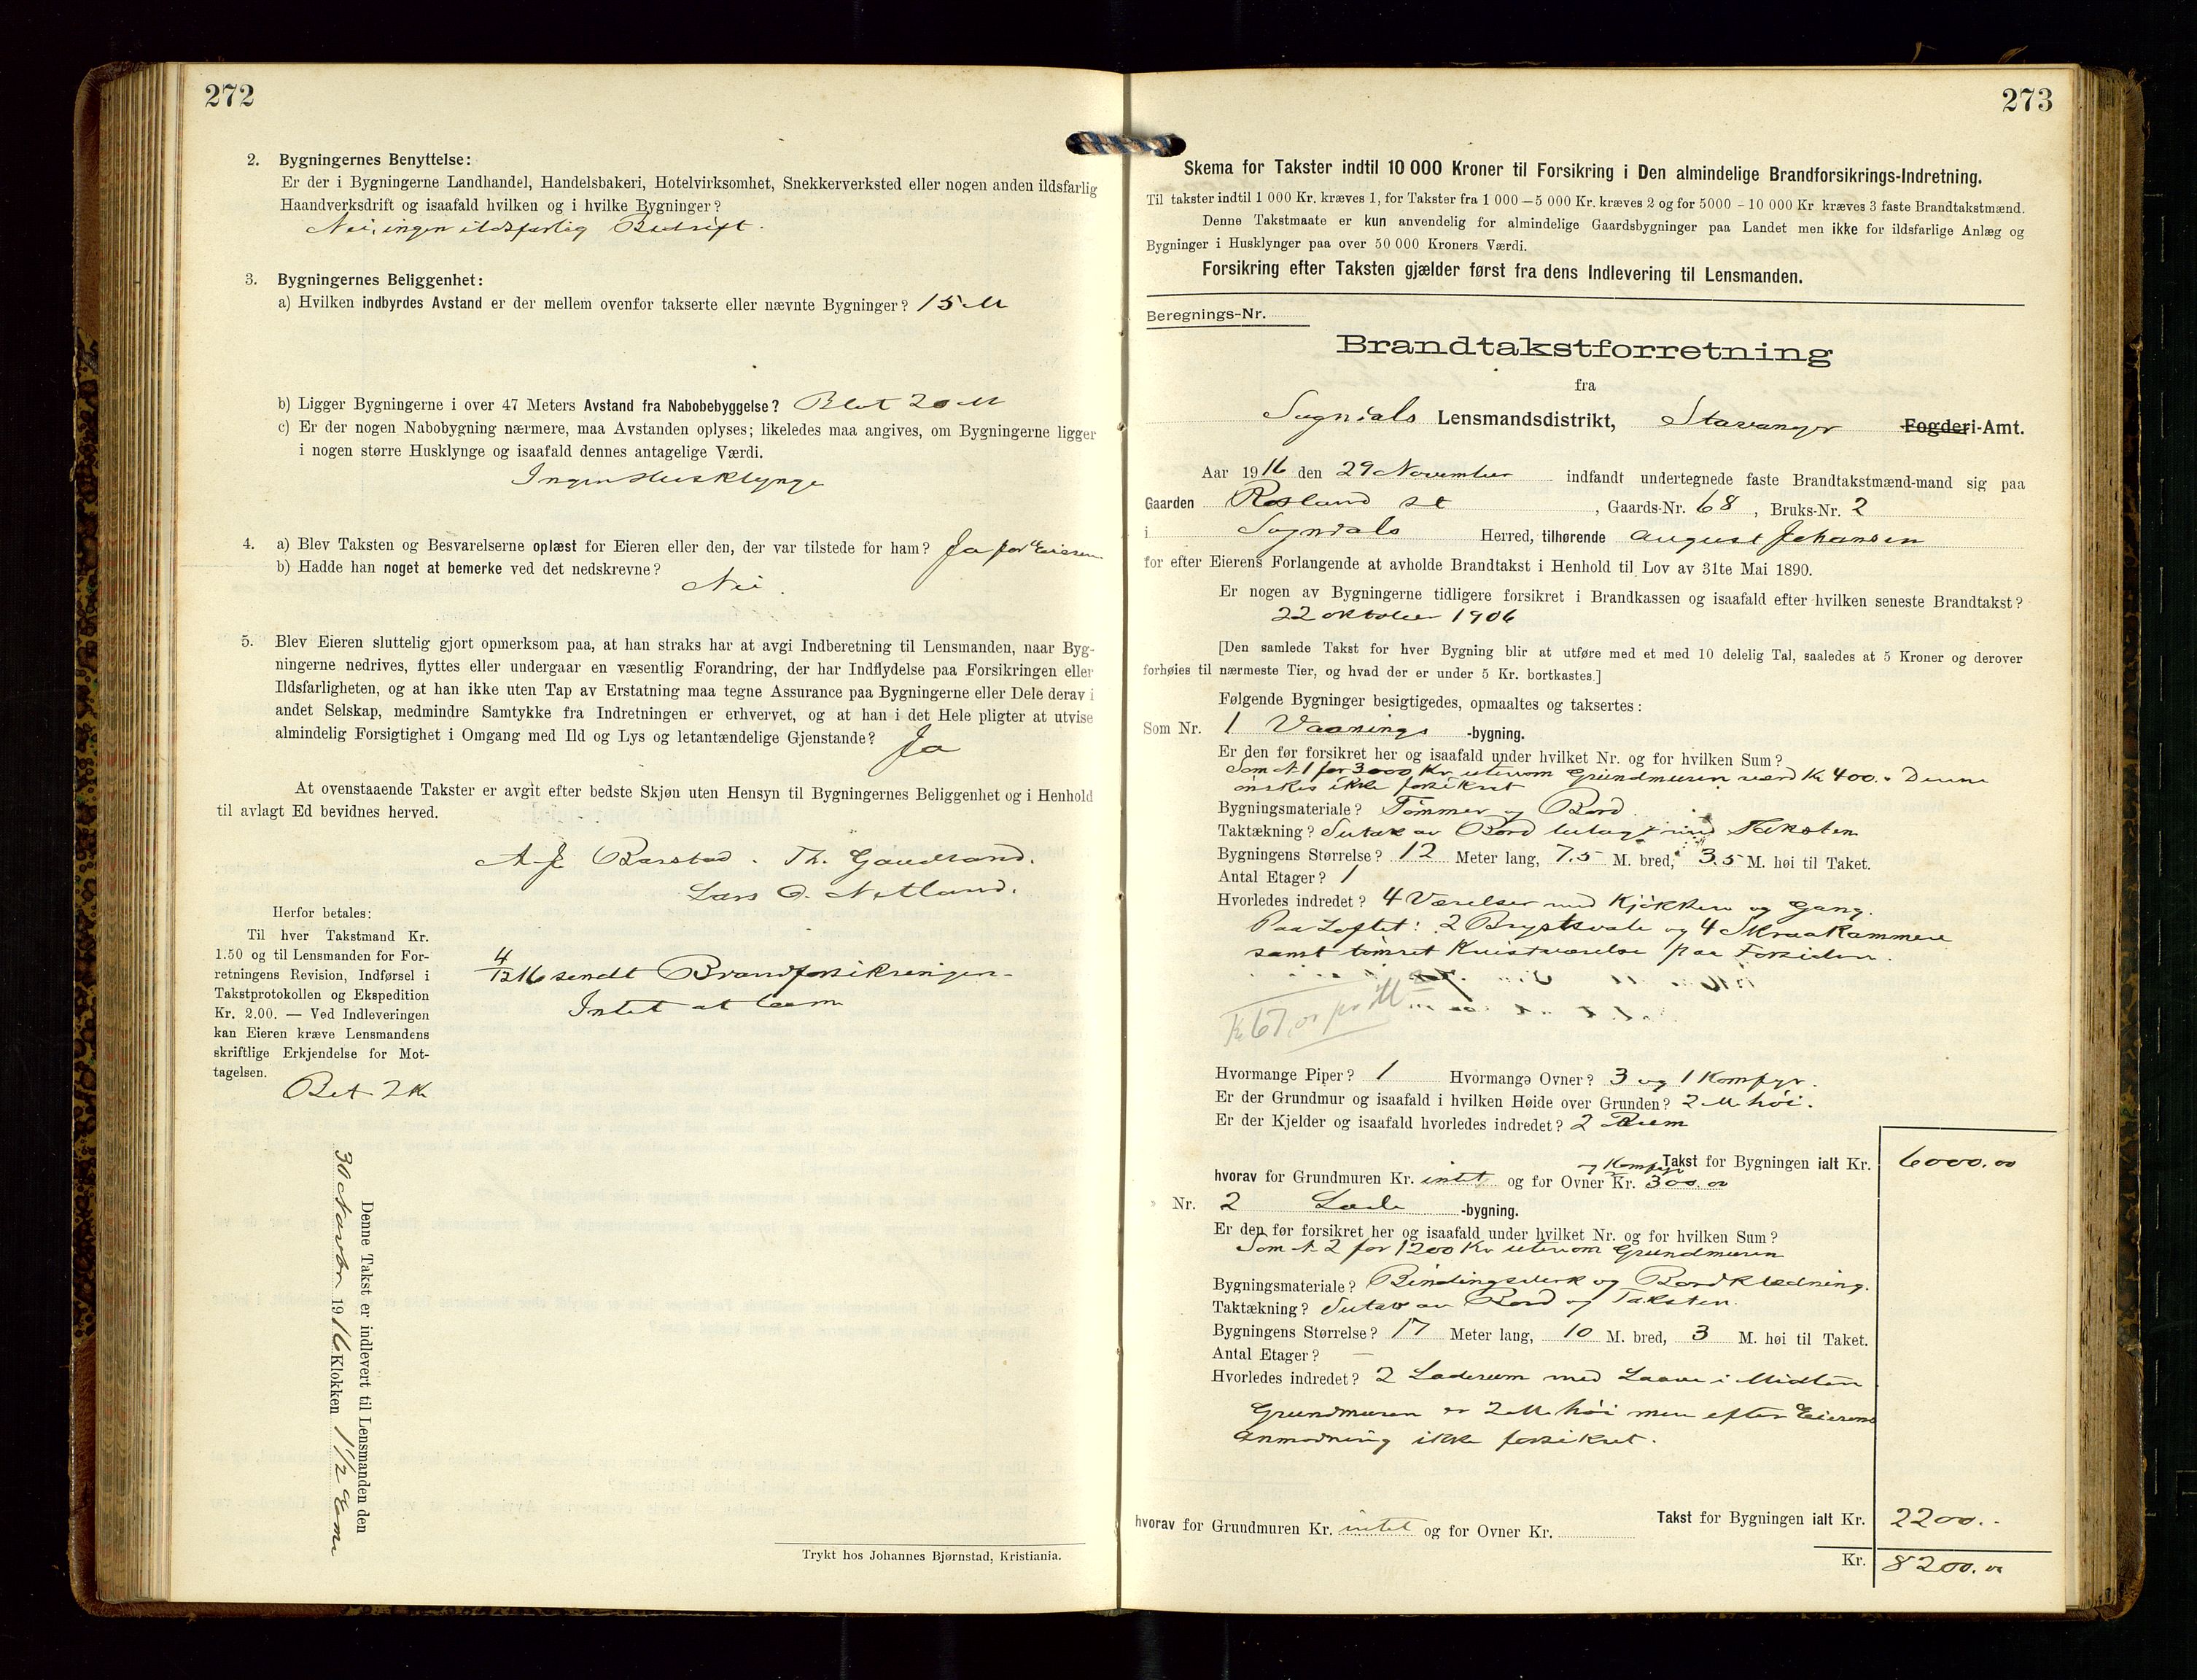 272
2. Bygningernes Benyttelse:
Er der i Bygningerne Landhandel, Handelsbakeri, Hotelvirksomhet, Snekkerverksted eller nogen anden ildsfarlig
Haandverksdrift og isaafald hvilken og i hvilke Bygninger?
Nei, ingen ildsfarlig Bedrift.
3. Bygningernes Beliggenhet:
a) Hvilken indbyrdes Avstand er der mellem ovenfor takserte eller nævnte Bygninger? 15 M
b) Ligger Bygningerne i over 47 Meters Avstand fra Nabobebyggelse? Blot 20 M
c) Er der nogen Nabobygning nærmere, maa Avstanden oplyses; likeledes maa angives, om Bygningerne ligger
i nogen større Husklynge og isaafald dennes antagelige Værdi.
Ingen Husklynge
4. a) Blev Taksten og Besvarelserne oplæst for Eieren eller den, der var tilstede for ham? Ja for Eieren
b) Hadde han noget at bemerke ved det nedskrevne?
Nei.
5. Blev Eieren sluttelig gjort opmerksom paa, at han straks har at avgi Indberetning til Lensmanden, naar Byg-
ningerne nedrives, flyttes eller undergaar en væsentlig Forandring, der har Indflydelse paa Forsikringen eller
Ildsfarligheten, og at han ikke uten Tap av Erstatning maa tegne Assurance paa Bygningerne eller Dele derav i
andet Selskap, medmindre Samtykke fra Indretningen er erhvervet, og at han i det Hele pligter at utvise
almindelig Forsigtighet i Omgang med Ild og Lys og letantændelige Gjenstande? Ja
At ovenstaaende Takster er avgit efter bedste Skjøn uten Hensyn til Bygningernes Beliggenhet og i Henhold
til avlagt Ed bevidnes herved.
A. J. Barstad. Th. Gaudland.
Lars O. Netland.
Herfor betales:
Til hver Takstmand Kr.
1.50 og til Lensmanden for For-
retningens Revision, Indførsel i
Takstprotokollen og Ekspedition
Kr. 2.00. — Ved Indleveringen
kan Eieren kræve Lensmandens
skriftlige Erkjendelse for Mot-
tagelsen.
Bet 2 Kr
4/12 16 sendt Brandforsikringen-
Intet at
Denne Takst er indlevert til Lensmanden den
30 Novbr 1916 Klokken 1 1/2 Em
Trykt hos Johannes Bjørnstad, Kristiania.
273
Skema for Takster indtil 10 000 Kroner til Forsikring i Den almindelige Brandforsikrings-Indretning.
Til takster indtil 1 000 Kr. kræves 1, for Takster fra 1 000 — 5 000 Kr. kræves 2 og for 5000 – 10 000 Kr kræves 3 faste Brandtakstmænd.
Denne Takstmaate er kun anvendelig for almindelige Gaardsbygninger paa Landet men ikke for ildsfarlige Anlæg og
Bygninger i Husklynger paa over 50 000 Kroners Værdi.
Forsikring efter Taksten gjælder først fra dens Indlevering til Lensmanden.
Beregnings-Nr.
Brandtakstforretning
fra
Sogndals Lensmandsdistrikt, Stavanger Fogderi-Amt.
Aar 1916 den 29 November indfandt undertegnede faste Brandtakstmænd-mand sig paa
Gaarden Rosland st, Gaards-Nr. 68, Bruks-Nr. 2
i Sogndals Herred, tilhørende August Johansen
for efter Eierens Forlangende at avholde Brandtakst i Henhold til Lov av 31te Mai 1890.
Er nogen av Bygningerne tidligere forsikret i Brandkassen og isaafald efter hvilken seneste Brandtakst?
22 oktober 1906
[Den samlede Takst for hver Bygning blir at utføre med et med 10 delelig Tal, saaledes at 5 Kroner og derover
forhøies til nærmeste Tier, og hvad der er under 5 Kr. bortkastes.]
Følgende Bygninger besigtigedes, opmaaltes og taksertes:
Som Nr. 1 Vaanings-bygning.
Er den før forsikret her og isaafald under hvilket Nr. og for hvilken Sum?
Som N 1 for 3000 Kr utenom Grundmuren værd Kr 400.- Denne
ønskes ikke forsikret
Bygningsmateriale? Tømmer og Bord.
Taktækning? Sutak av Bord belagt med Taksten
Bygningens Størrelse? 12 Meter lang, 7.5 M. bred, 3.5 M. høi til Taket.
Antal Etager? 1
Hvorledes indredet? 4 Værelser med Kjøkken og Gang.
Paa Loftet: 2 Brystsvale og 4 Skraakammere
samt tømret Kvistværelse paa Forsiden.
Kr 67,00 pr M
Hvormange Piper? 1 Hvormange Ovner? 3 og 1 Komfyr.
Er der Grundmur og isaafald i hvilken Høide over Grunden? 2 M høi.
Er der Kjelder og isaafald hvorledes indredet? 2 Rum
Takst for Bygningen ialt Kr. 6000.00
og Komfyr
hvorav for Grundmuren Kr. intet og for Ovner Kr. 300.00
Nr. 2 Lade-bygning.
Er den før forsikret her og isaafald under hvilket Nr. og for hvilken Sum?
Som N 2 for 1200 Kr utenom Grundmuren
Bygningsmateriale? Bindingsverk og Bordklædning.
Taktækning? Sutak av Bord og Taksten.
Bygningens Størrelse? 17 Meter lang, 10 M. bred, 3 M. høi til Taket.
Antal Etager? —
Hvorledes indredet? 2 Laderum med Laave i Midten
Grundmuren er 2 M høi men efter Eierens
Anmodning ikke forsikret.
Takst for Bygningen ialt Kr. 2200.-
hvorav for Grundmuren Kr. intet og for Ovner Kr.
Kr. 8200.00